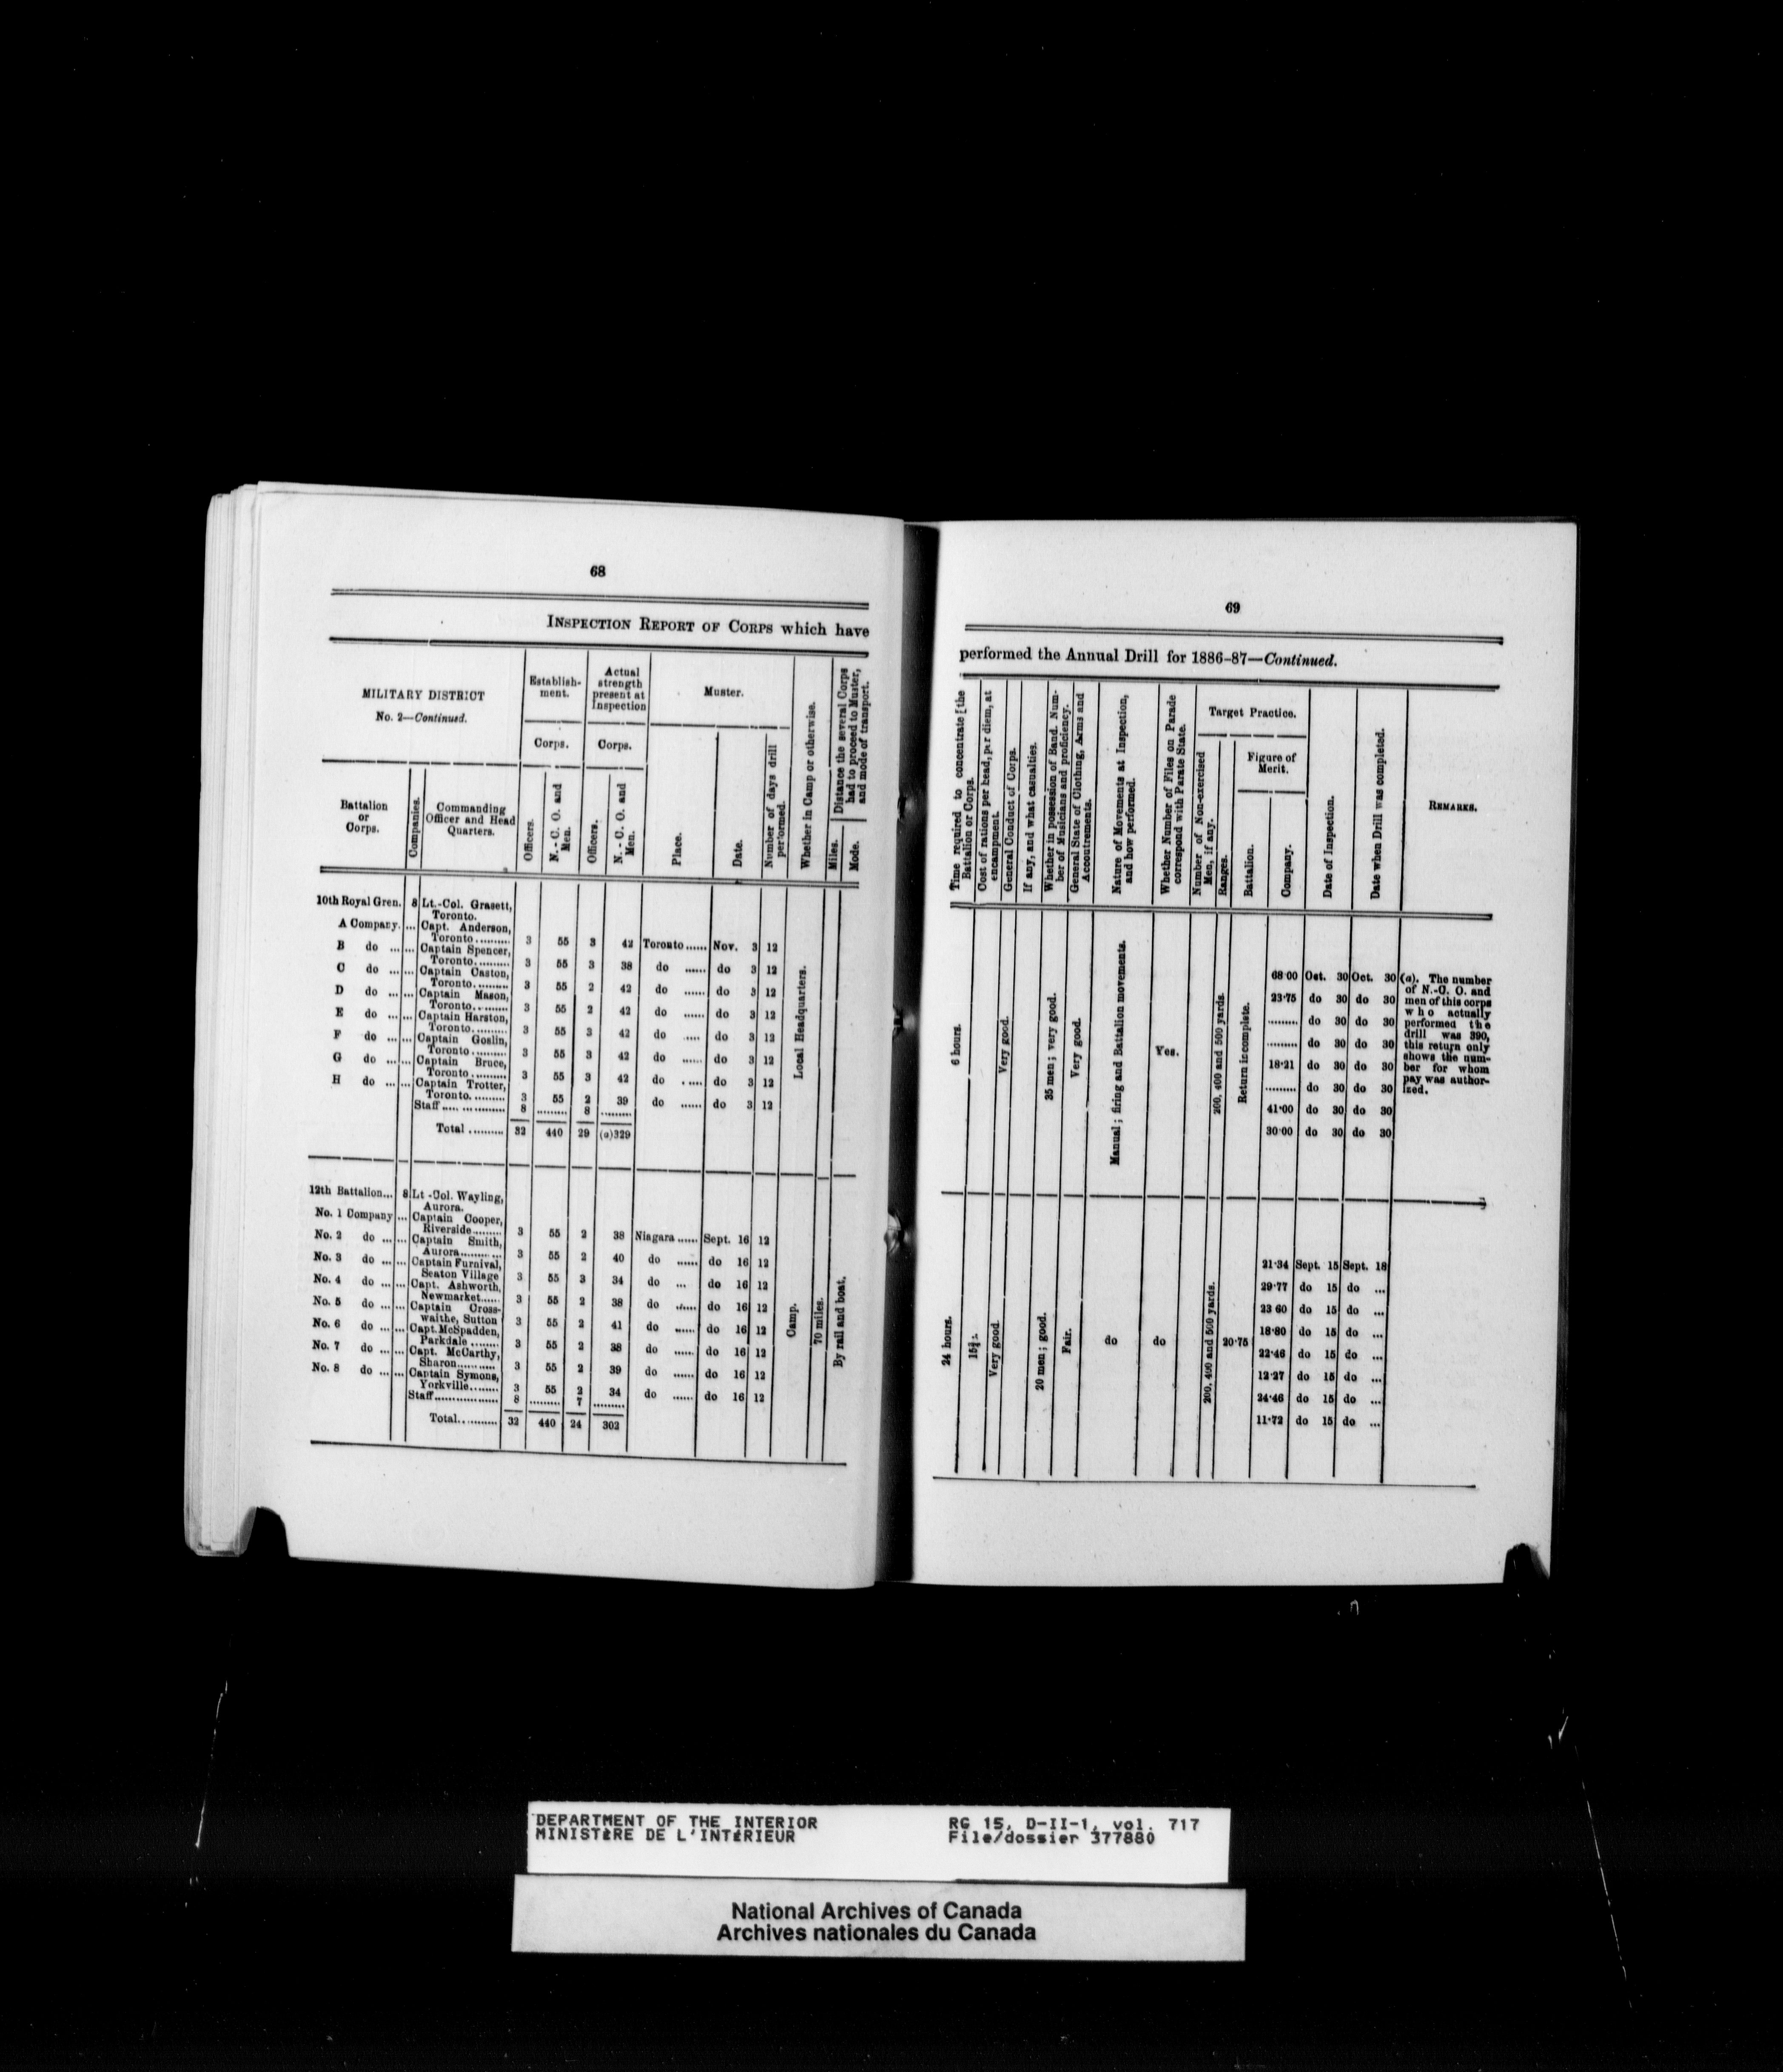 68
INSPECTION REPORT OF CORPS which have
MILITARY DISTRICT
No. 2—Continued.
Establish-
ment.
Actual
strength
present at
Inspection
Muster.
Corps.
Corps.
Battalion
or
Corps.
Companies.
Commanding
Officer and Head
Quarters.
Officers.
N.-C. O. and
Men.
Officers.
N.-C. O. and
Men.
Place.
Date.
Number of days drill
performed.
Whether in Camp or otherwise.
Distance the several Corps
had to proceed to Muster,
and mode of transport.
Miles.
Mode.
10th Royal Gren. 8 Lt.-Col. Grasett,
Toronto.
A Company. ... Capt. Anderson,
Toronto.......... 3 55 3 42 Toronto...... Nov. 3 12
B do ... ... Captain Spencer,
Toronto.......... 3 55 3 38 do ...... do 3 12
C do ... ... Captain Caston,
Toronto.......... 3 55 2 42 do ...... do 3 12
D do ... ... Captain Mason,
Toronto.......... 3 55 2 42 do ...... do 3 12
E do ... ... Captain Harston,
Toronto.......... 3 55 3 42 do ..... do 3 12
F do ... ... Captain Goslin,
Toronto.......... 3 55 3 42 do ...... do 3 12
G do ... ... Captain Bruce,
Toronto.......... 3 55 3 42 do ...... do 3 12
H do ... ... Captain Trotter,
Toronto.......... 3 55 2 39 do ...... do 3 12
Staff.................. 8 ......... 8 .........
Total .......... 32 440 29 (a)329
Local Headquarters.
12th Battalion... 8 Lt -Col. Wayling,
Aurora.
No. 1 Company ... Captain Cooper,
Riverside......... 3 55 2 38 Niagara ...... Sept. 16 12
No. 2 do ... ... Captain Smith,
Aurora............ 3 55 2 40 do ...... do 16 12
No. 3 do ... ... Captain Furnival,
Seaton Village 3 55 3 34 do ... do 16 12
No. 4 do ... ... Capt. Ashworth,
Newmarket...... 3 55 2 38 do ...... do 16 12
No. 5 do ... ... Captain Cross-
waithe, Sutton 3 55 2 41 do ...... do 16 12
No. 6 do ... ... Capt. McSpadden,
Parkdale ........ 3 55 2 38 do ...... do 16 12
No. 7 do ... ... Capt. McCarthy,
Sharon........... 3 55 2 39 do ...... do 16 12
No. 8 do ... ... Captain Symons,
Yorkville........ 3 55 2 34 do ...... do 16 12
Staff.................. 8 ......... 7 .........
Total........... 32 440 24 302
Camp.
70 miles.
By rail and boat.
69
performed the Annual Drill for 1886-87—Continued.
Time required to concentrate [the
Battalion or Corps.
Cost of rations per head, per diem, at
encampment.
General Conduct of Corps.
If any, and what casualties.
Whether in possession of Band. Num-
ber of Musicians and proficiency.
General State of Clothing, Arms and
Accoutrements.
Nature of Movements at Inspection,
and how performed.
Whether Number of Files on Parade
correspond with Parate State.
Target Practice.
Number of Non-exercised
Men, if any.
Ranges.
Figure of
Merit.
Battalion.
Company.
Date of Inspection.
Date when Drill was completed.
REMARKS.
6 hours.
Very good.
35 men; very good.
Very good.
Manual; firing and Battalion movements.
Yes.
200, 400 and 500 yards.
Return incomplete.
68·00 Oct. 30 Oct. 30
23·75 do 30 do 30
......... do 30 do 30
......... do 30 do 30
18·21 do 30 do 30
......... do 30 do 30
41·00 do 30 do 30
30·00 do 30 do 30
(a). The number
of N.-C. O. and
men of this corps
who actually
performed the
drill was 390,
this return only
shows the num-
ber for whom
pay was author-
ized.
24 hours.
Very good.
20 men; good.
Fair.
do
do
200, 400 and 500 yards.
20·75
21·34 Sept. 15 Sept. 18
29·77 do 15 do ...
23 60 do 15 do ...
18·80 do 15 do ...
22·46 do 15 do ...
12·27 do 15 do ...
24·46 do 15 do ...
11·72 do 15 do ...
DEPARTMENT OF THE INTERIOR
MINISTÈRE DE L'INTÉRIEUR
RG 15, D-II-1, vol. 717
File/dossier 377880
National Archives of Canada
Archives nationales du Canada